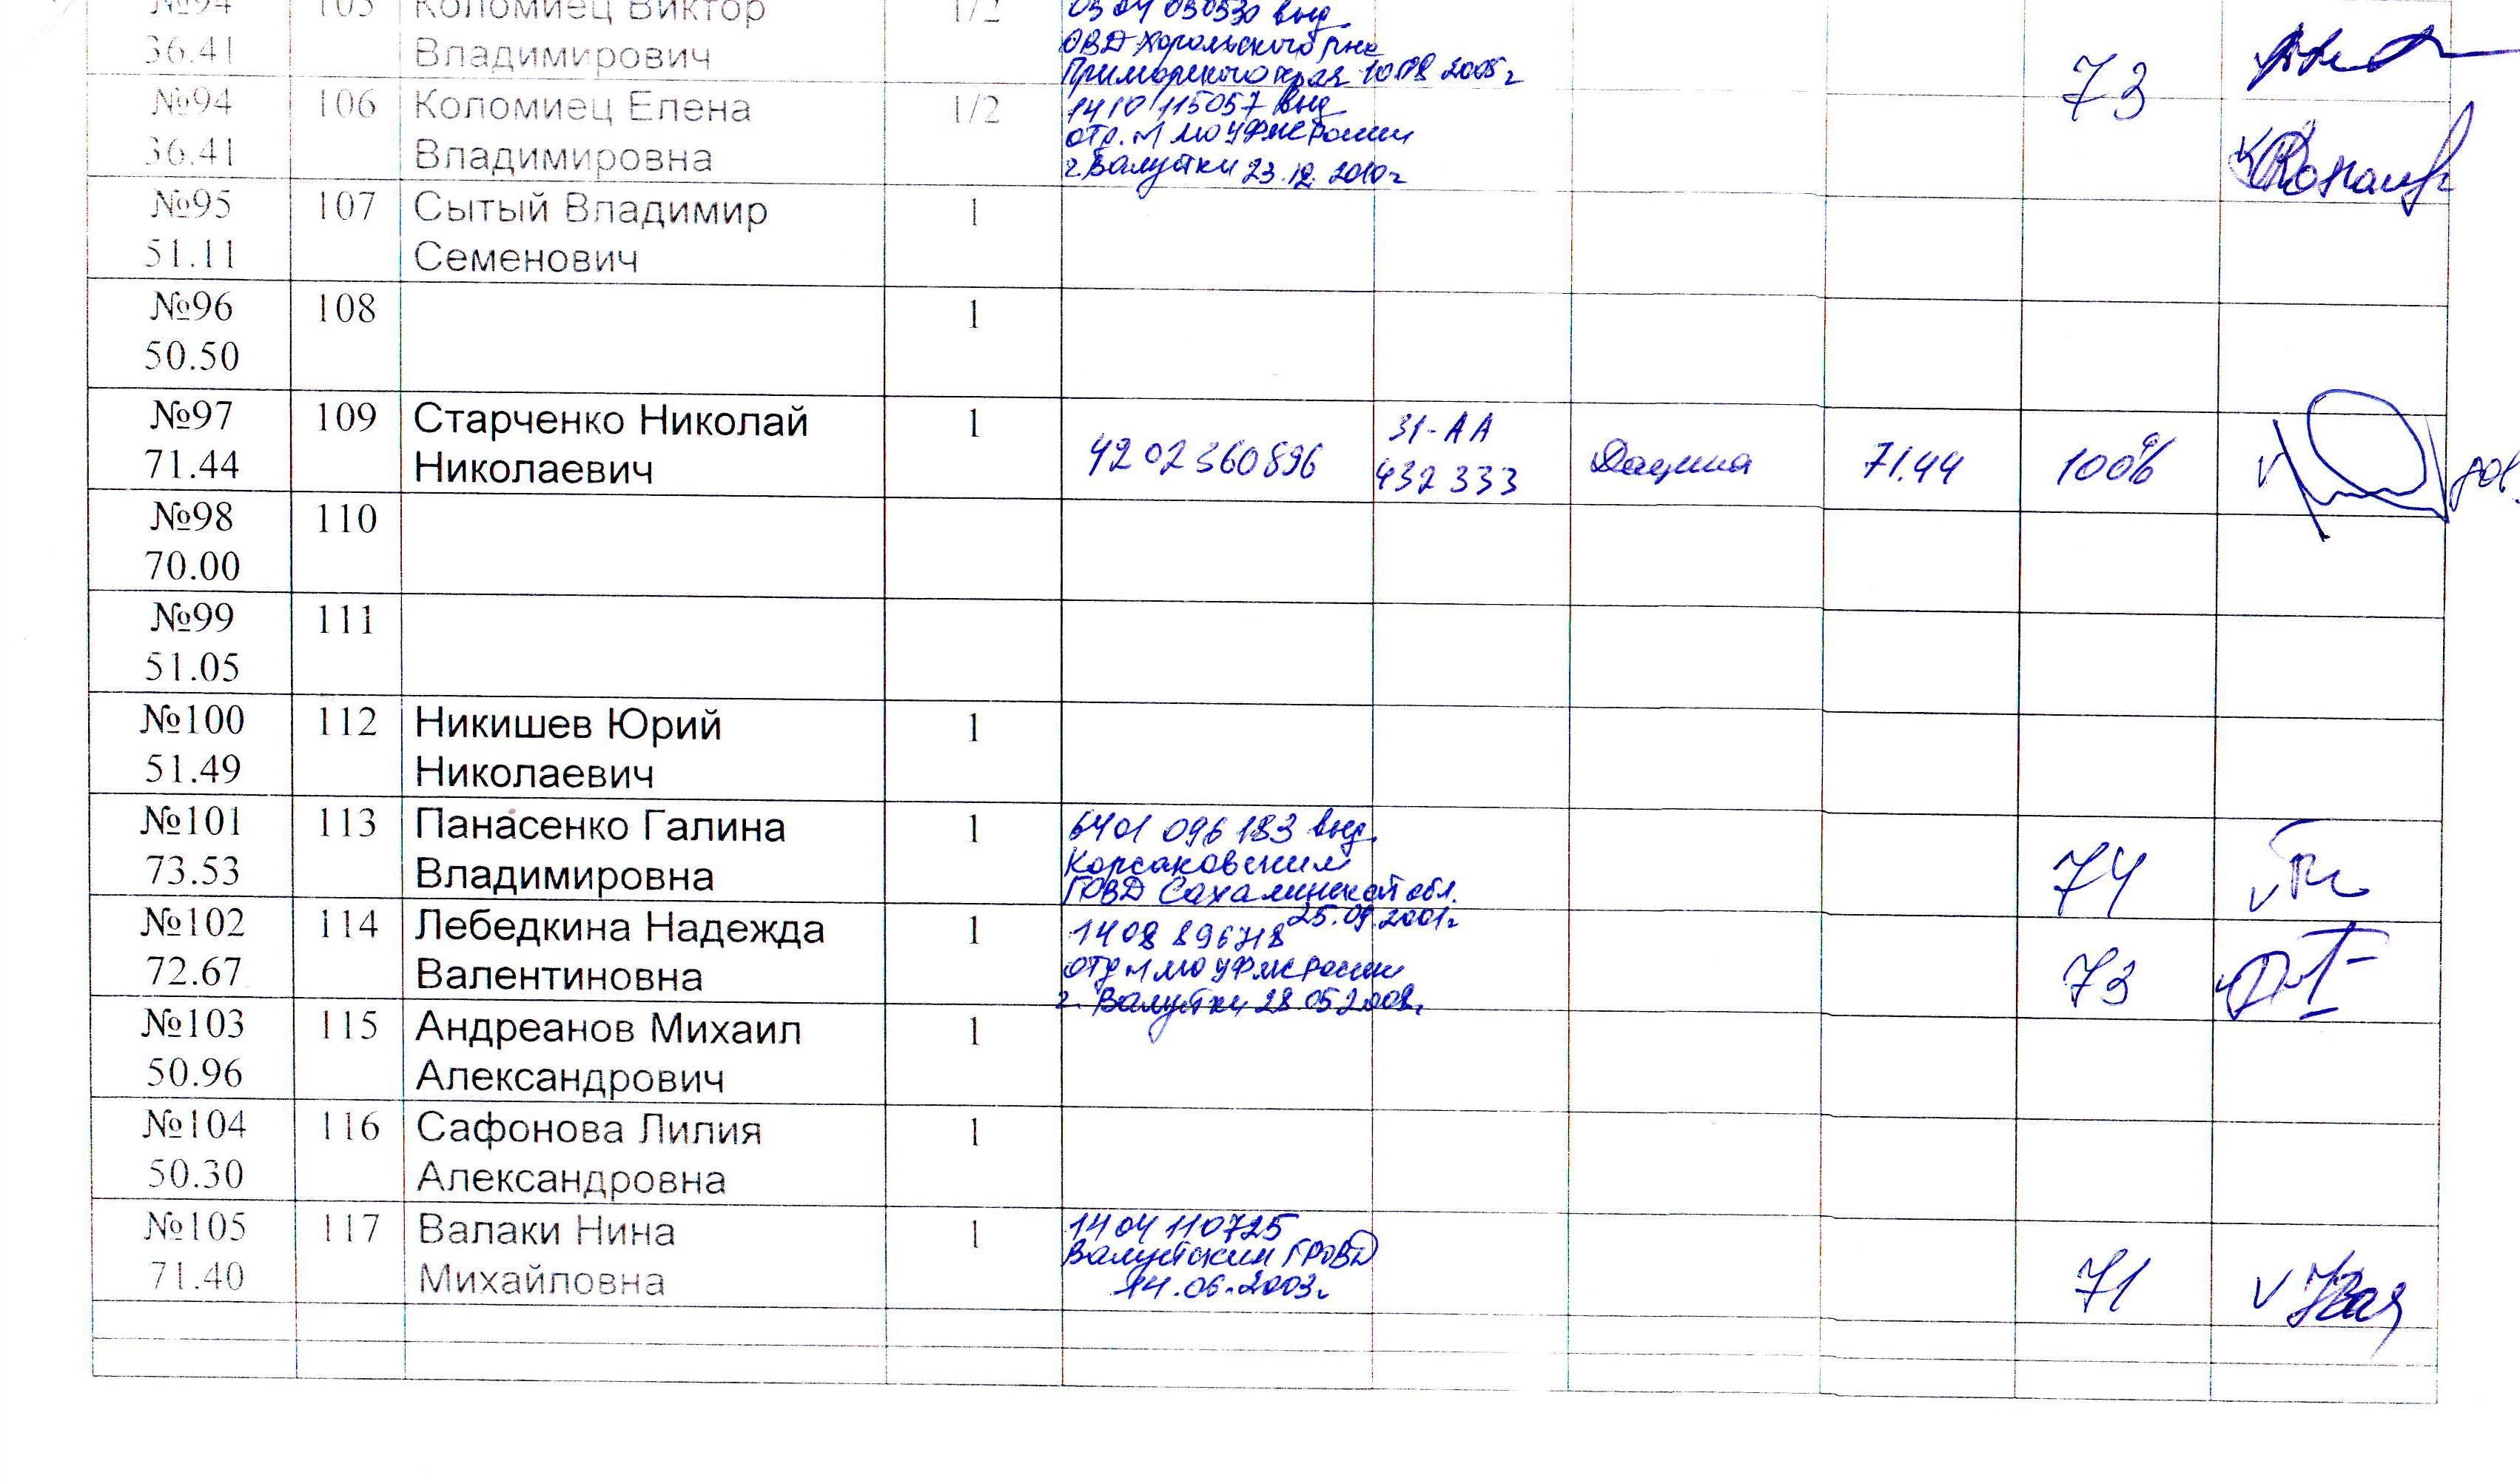 №94 105 Коломиец Виктор 1/2
36.41 Владимирович
ОВД Хорольского р-на
Приморского края 10.08 2005г
73
№94 106 Коломиец Елена 1/2 1410 115057 выд
36.41 Владимировна
отд. №1 МО УФМС России
г. Валуйки 23.12.2010г
№95 107 Сытый Владимир 1
51.11 Семенович
№96 108 1
50.50
№97 109 Старченко Николай 1 4202 360896 31-АА 432333 71.44 100% дов.
71.44 Николаевич
№98 110
70.00
№99 111
51.05
№100 112 Никишев Юрий 1
51.49 Николаевич
№101 113 Панасенко Галина 1 6401 096183 выд. 74
73.53 Владимировна
Корсаковским
ГОВД Сахалинской обл.
25.09.2001г
№102 114 Лебедкина Надежда 1 1408 896718 73
72.67 Валентиновна
отд №1 МО УФМС России
г. Валуйки 28.05.2008г
№103 115 Андреанов Михаил 1
50.96 Александрович
№104 116 Сафонова Лилия 1
50.30 Александровна
№105 117 Валаки Нина 1 1404 110725 71
71.40 Михайловна
Валуйским ГРОВД
14.06.2003г